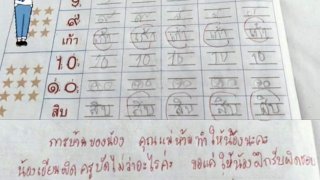 9.
๙ ๙ ๙ ๙ ๙ ๙
เก้า เก้า เก้า เก้า เก้า เก้า
10. 10 10 10 10 10
๑๐. ๑๐ ๑๐ ๑๐ ๑๐ ๑๐
สิบ สิบ สิบ สิบ สิบ สิบ
การบ้านของน้อง คุณแม่ห้ามทำให้น้องนะคะ
น้องเขียนผิด ครูปัดไม่ว่าอะไรค่ะ ขอแค่ให้น้องฝึกรับผิดชอบ